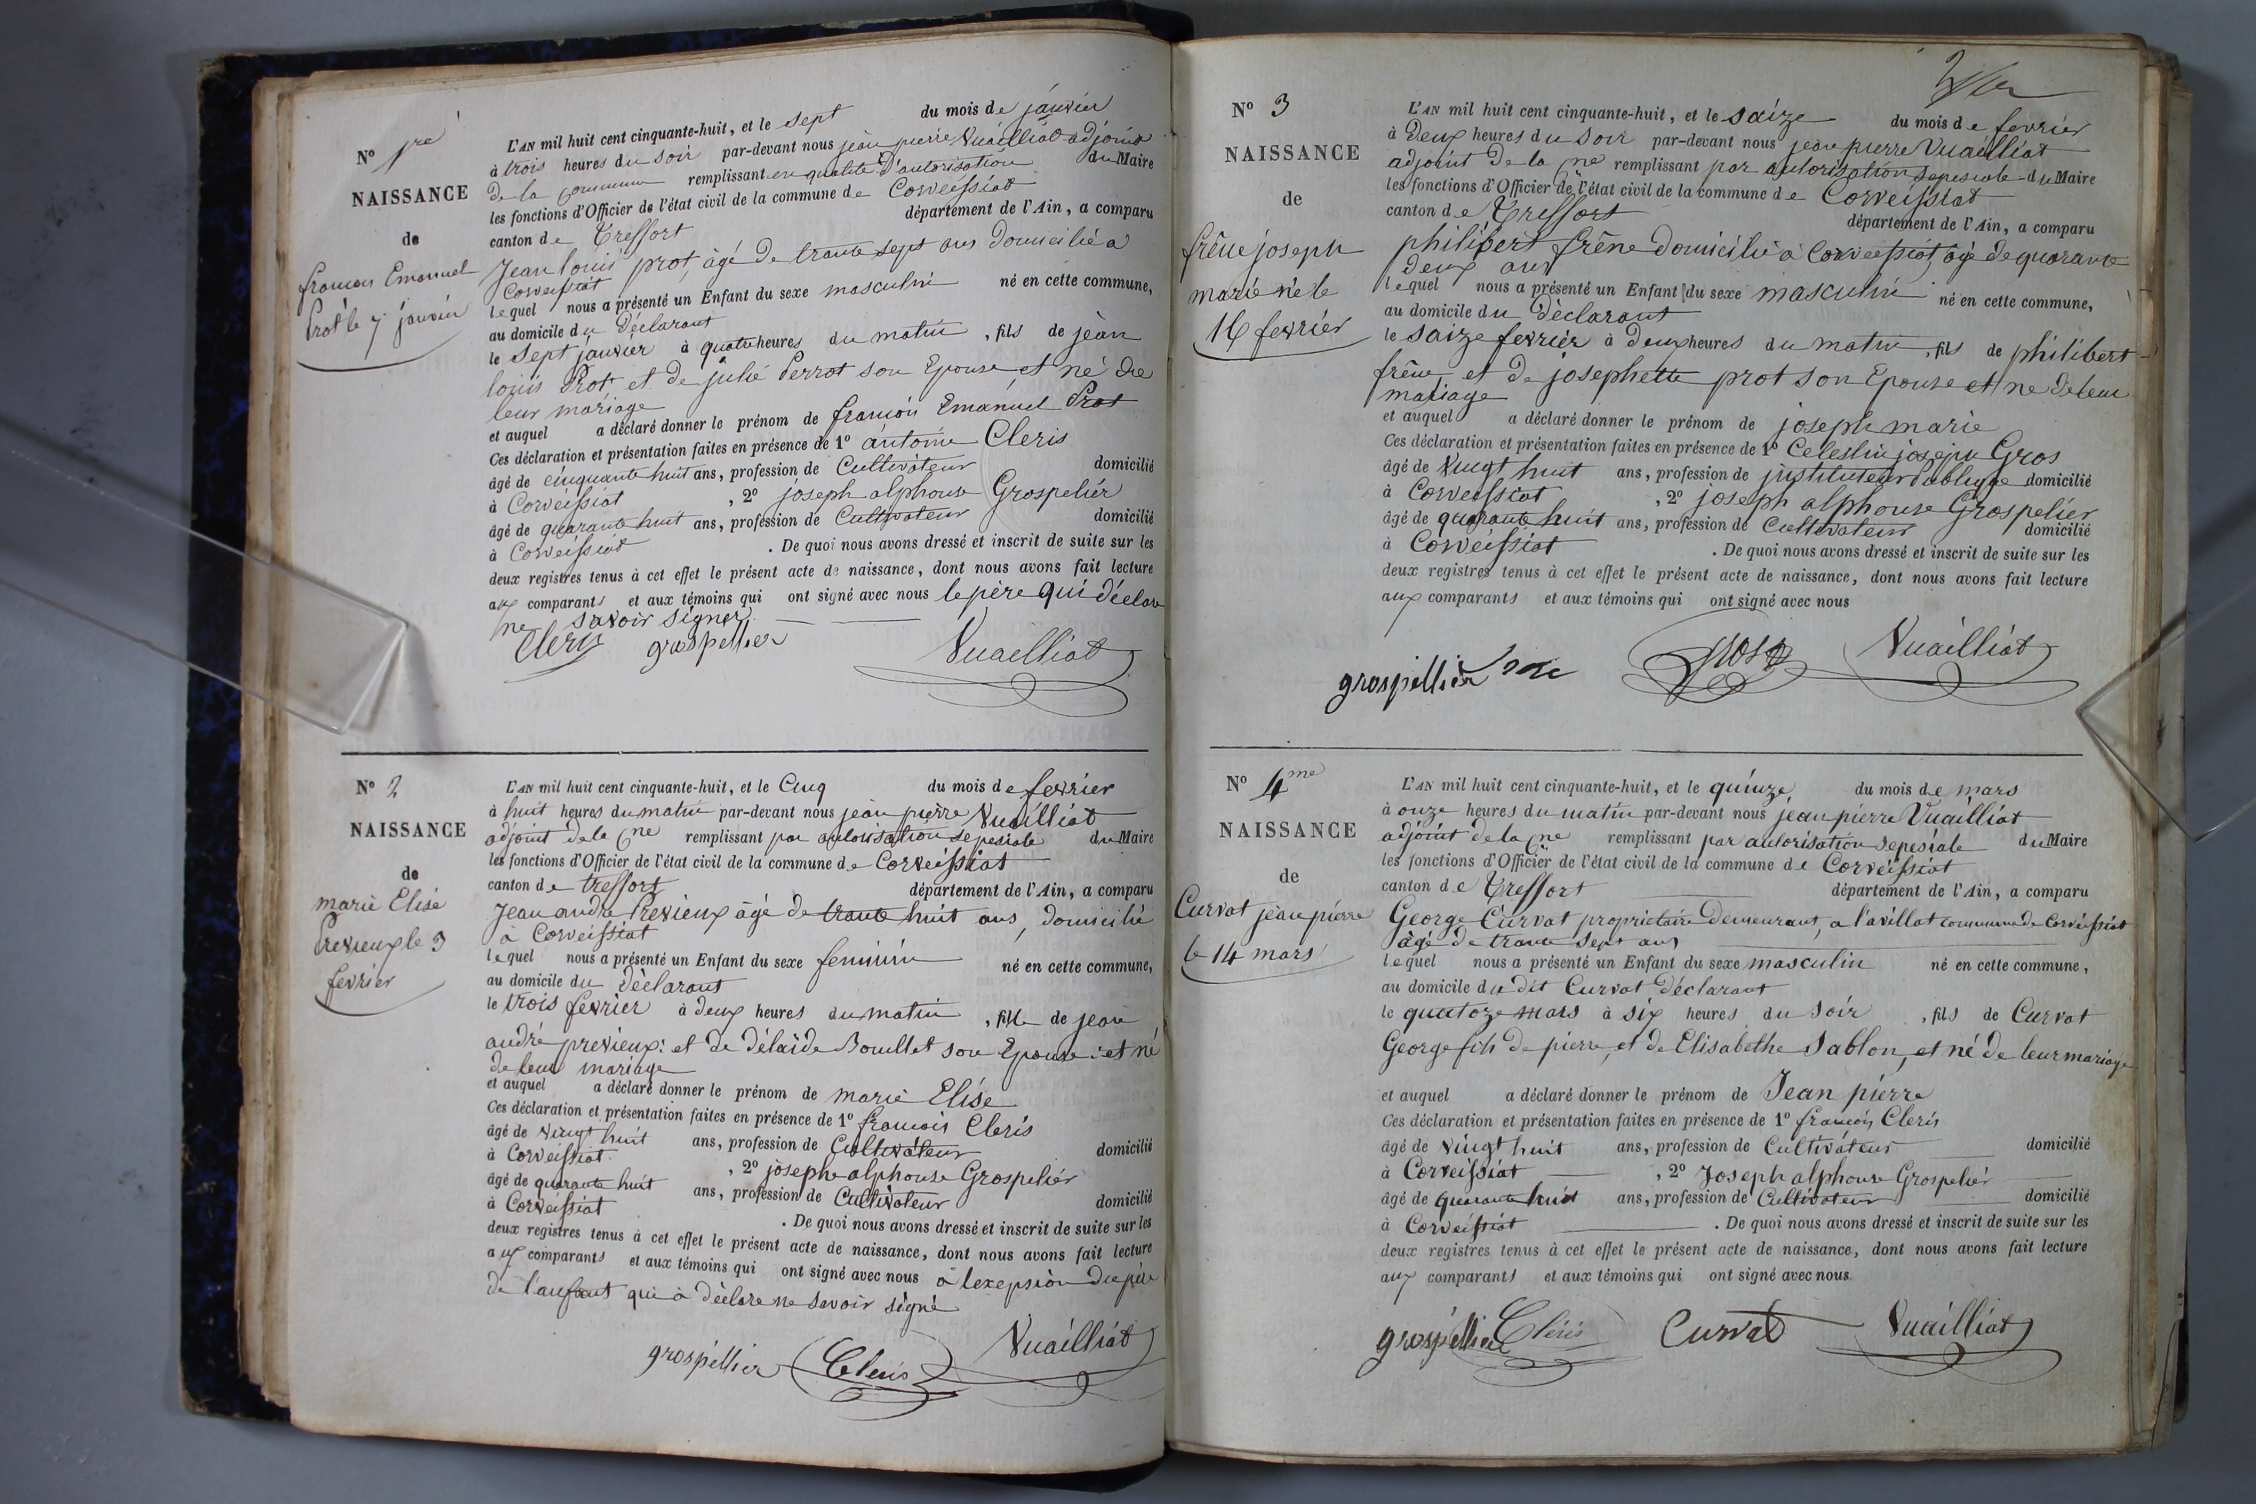 N° 1re
NAISSANCE
de
francois Emanuel
Prot le 7 janvier
L'AN mil huit cent cinquante-huit, et le sept du mois de janvier
à trois heures du soir par-devant nous jean pierre Vuailliat adjoint
de la commune remplissant en qualité d'autorisation du Maire
les fonctions d'Officier de l'état civil de la commune de Corveissiat
canton de Treffort département de l'Ain, a comparu
Jean louis prot, âgé de trante sept ans domicilié a
Corveissiat
lequel nous a présenté un Enfant du sexe masculin né en cette commune,
au domicile du déclarant
le sept janvier à quatre heures du matin, fils de jean
louis Prot et de julie Perrot son Epouse et né de
leur mariage
et auquel a déclaré donner le prénom de francois Emanuel Prot
Ces déclaration et présentation faites en présence de 1° antoine Cleris
âgé de cinquante huit ans, profession de Cultivateur domicilié
à Corveissiat, 2° joseph alphonse Grospelier
âgé de quarante huit ans, profession de Cultivateur domicilié
à Corveissiat. De quoi nous avons dressé et inscrit de suite sur les
deux registres tenus à cet effet le présent acte de naissance, dont nous avons fait lecture
aux comparants et aux témoins qui ont signé avec nous le père qui déclare
ne savoir signer.
Cleris grospellier Vuailliat
N° 2
NAISSANCE
de
marie Elise
Previeux le 3
fevrier
L'AN mil huit cent cinquante-huit, et le Cinq du mois de fevrier
à huit heures du matin par-devant nous jean pierre Vuailliat
adjoint de la Cne remplissant par autorisation sepesiale du Maire
les fonctions d'Officier de l'état civil de la commune de Corveissiat
canton de treffort département de l'Ain, a comparu
Jean andré Previeux âgé de trante huit ans, domicilié
à Corveissiat
lequel nous a présenté un Enfant du sexe feminin né en cette commune,
au domicile du déclarant
le trois fevrier à deux heures du matin, fille de jean
andré previeux: et de délaïde Bouillet son Epouse: et né
de leur mariage
et auquel a déclaré donner le prénom de marie Elise
Ces déclaration et présentation faites en présence de 1° francois Cleris
âgé de vingt huit ans, profession de Cultivateur domicilié
à Corveissiat, 2° joseph alphonse Grospelier
âgé de quarante huit ans, profession de Cultivateur domicilié
à Corveissiat. De quoi nous avons dressé et inscrit de suite sur les
deux registres tenus à cet effet le présent acte de naissance, dont nous avons fait lecture
aux comparants et aux témoins qui ont signé avec nous à lexepsion du père
de l'anfant qui à déclare ne savoir signé
grospellier Cleris Vuailliat
N° 3
NAISSANCE
de
frêne joseph
marie né le
16 fevrier
L'AN mil huit cent cinquante-huit, et le saize du mois de fevrier
à deux heures du soir par-devant nous jean pierre Vuailliat
adjoint de la Cne remplissant par autorisation sepesiale du Maire
les fonctions d'Officier de l'état civil de la commune de Corveissiat
canton de Treffort département de l'Ain, a comparu
philibert frêne domicilié à Corveissiat, âgé de quarante
deux ans
lequel nous a présenté un Enfant du sexe masculin né en cette commune,
au domicile du déclarant
le saize fevrier à deux heures du matin, fils de philibert
frêne et de josephette prot son Epouse et né de leur
mariage
et auquel a déclaré donner le prénom de joseph marie
Ces déclaration et présentation faites en présence de 1° Celestin joseph Gros
âgé de vingt huit ans, profession de jnstituteur Publique domicilié
à Corveissiat, 2° joseph alphonse Grospelier
âgé de quarante huit ans, profession de Cultivateur domicilié
à Corveissiat. De quoi nous avons dressé et inscrit de suite sur les
deux registres tenus à cet effet le présent acte de naissance, dont nous avons fait lecture
aux comparants et aux témoins qui ont signé avec nous
grospellier Gros Vuailliat
N° 4me
NAISSANCE
de
Curvat jean pierre
le 14 mars
L'AN mil huit cent cinquante-huit, et le quinze du mois de mars
à onze heures du matin par-devant nous jean pierre Vuailliat
adjoint de la Cne remplissant par autorisation sepesiale du Maire
les fonctions d'Officier de l'état civil de la commune de Corveissiat
canton de Treffort département de l'Ain, a comparu
George Curvat proprietaire demeurant, a l'avillat commune de Corveissiat
âgé de trante sept ans
lequel nous a présenté un Enfant du sexe masculin né en cette commune,
au domicile du dit Curvat déclarant
le quatoze mars à six heures du soir, fils de Curvat
George fils de pierre, et de Elisabethe Sablon, et né de leur mariage
et auquel a déclaré donner le prénom de Jean pierre
Ces déclaration et présentation faites en présence de 1° francois Cleris
âgé de vingt huit ans, profession de Cultivateur domicilié
à Corveissiat, 2° Joseph alphonse Grospelier
âgé de quarante huit ans, profession de Cultivateur domicilié
à Corveissiat. De quoi nous avons dressé et inscrit de suite sur les
deux registres tenus à cet effet le présent acte de naissance, dont nous avons fait lecture
aux comparants et aux témoins qui ont signé avec nous.
grospellier Cléris Curvat Vuailliat